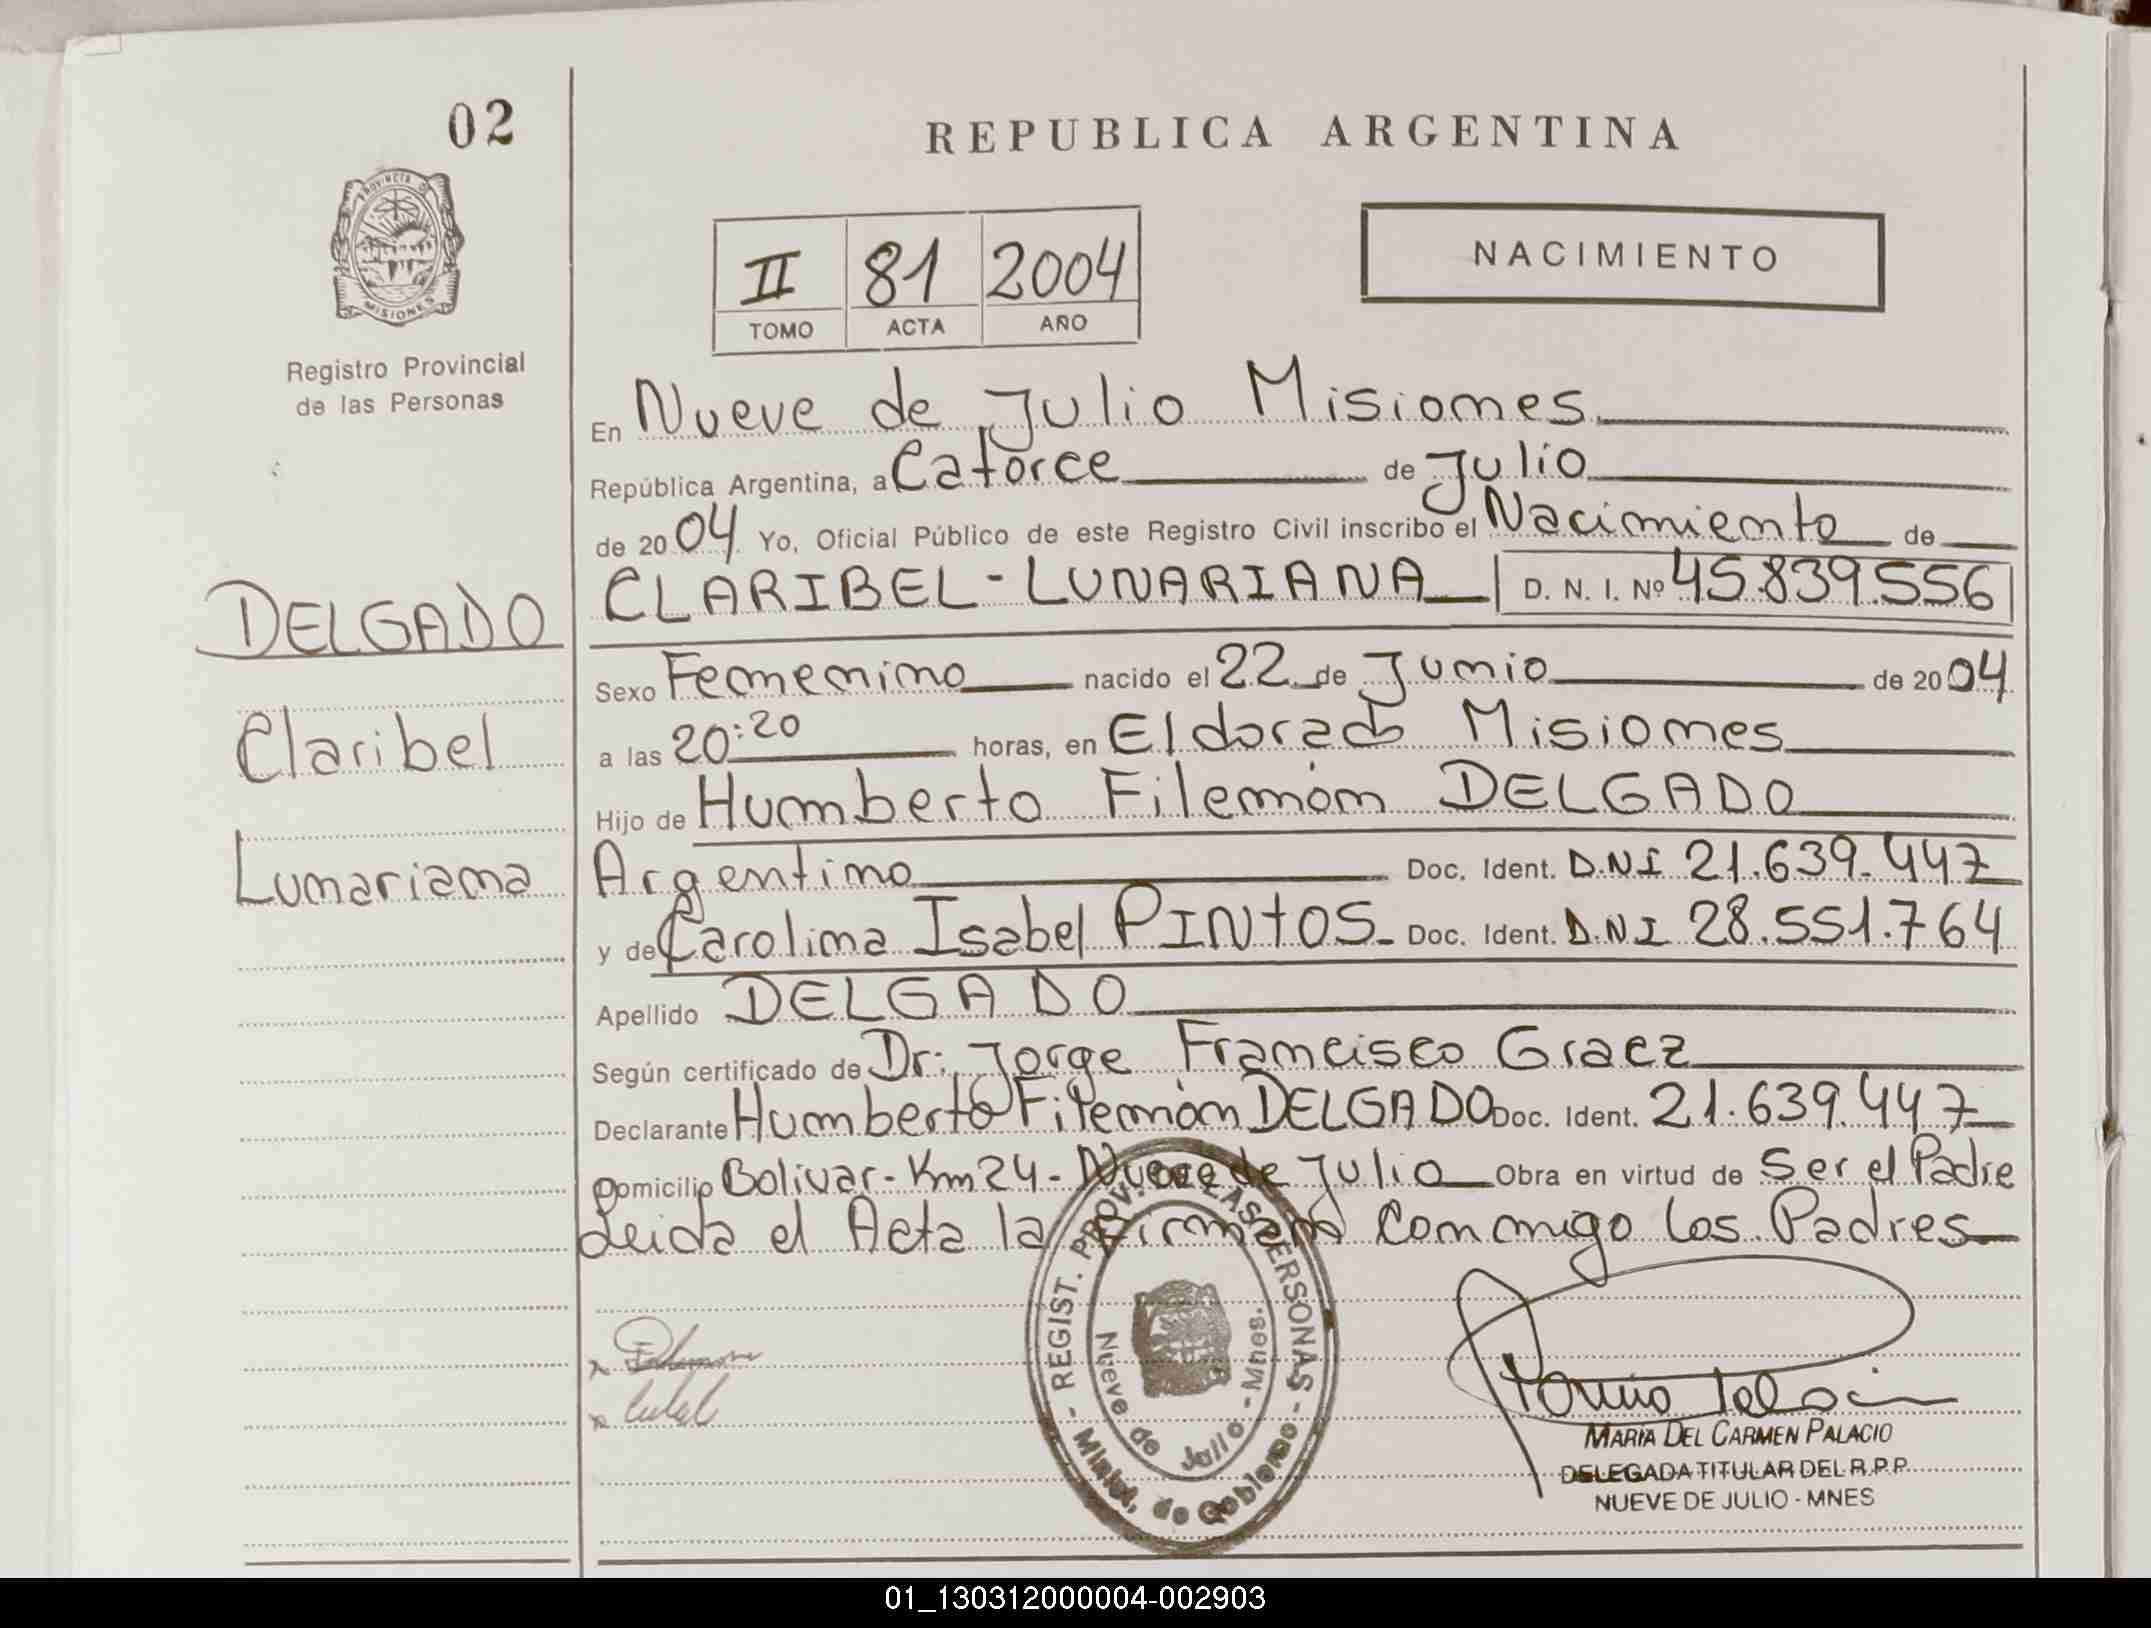 02
REPUBLICA ARGENTINA
PROVINCIA DE
MISIONES
Registro Provincial
de las Personas
II 81 2004
TOMO ACTA AÑO
NACIMIENTO
En Nueve de Julio Misiones
República Argentina, a Catorce de Julio
de 2004 Yo, Oficial Público de este Registro Civil inscribo el Nacimiento de
CLARIBEL - LUNARIANA D. N. I. Nº 45.839.556
DELGADO
Claribel
Lunariana
Sexo Femenino nacido el 22 de Junio de 2004
a las 20:20 horas, en Eldorado Misiones
Hijo de Humberto Filemón DELGADO
Argentino Doc. Ident. D.N.I 21.639.447
y de Carolina Isabel PINTOS Doc. Ident. D.N.I 28.551.764
Apellido DELGADO
Según certificado de Dr: Jorge Francisco Graez
Declarante Humberto Filemón DELGADO Doc. Ident. 21.639.447
Domicilio Bolivar - Km 24 - Nueve de Julio Obra en virtud de Ser el Padre
Leida el Acta la Firman Conmigo los Padres
REGIST. PROV. DE LAS PERSONAS
- Minist. de Gobierno -
Nueve de Julio - Mnes.
MARIA DEL CARMEN PALACIO
DELEGADA TITULAR DEL R.P.P.
NUEVE DE JULIO - MNES
01_130312000004-002903